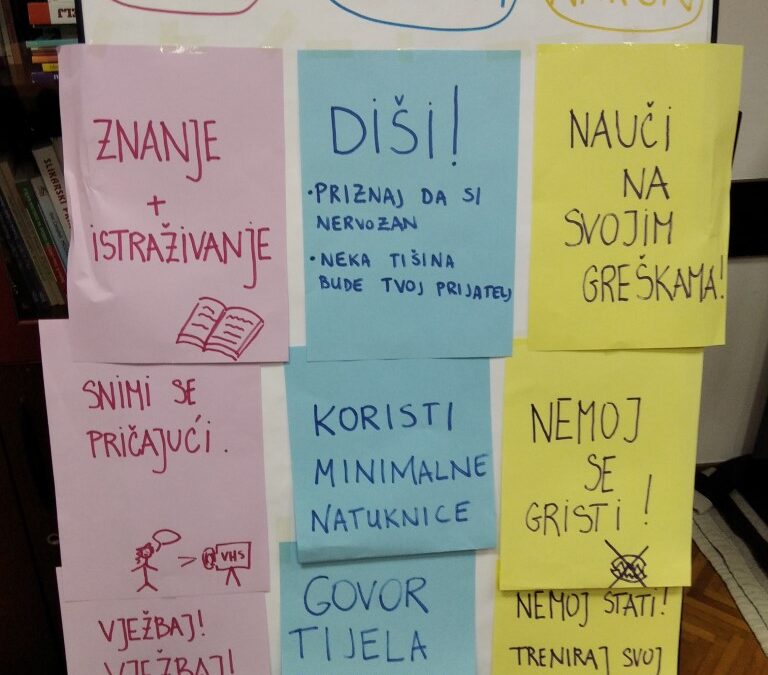 ZNANJE
+
ISTRAŽIVANJE
SNIMI SE
PRIČAJUĆI.
> VHS
VJEŽBAJ!
VJEŽBAJ!
DIŠI!
• PRIZNAJ DA SI
NERVOZAN
• NEKA TIŠINA
BUDE TVOJ PRIJATELJ
KORISTI
MINIMALNE
NATUKNICE
GOVOR
TIJELA
NAUČI
NA
SVOJIM
GREŠKAMA!
NEMOJ
SE
GRISTI!
NEMOJ STATI!
TRENIRAJ SVOJ
SLIKARSKI